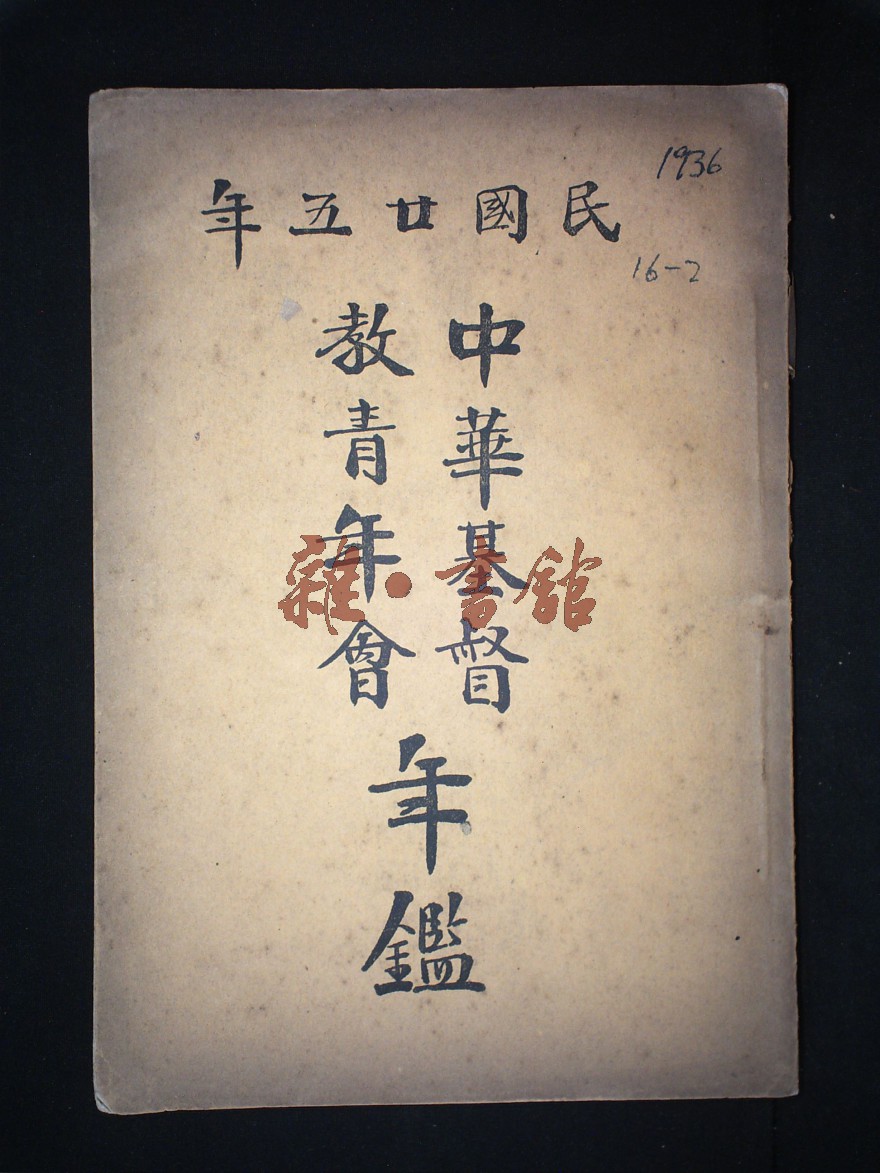 1936
民國廿五年
16-2
中華基督
教青年會
年鑑
雜·書館